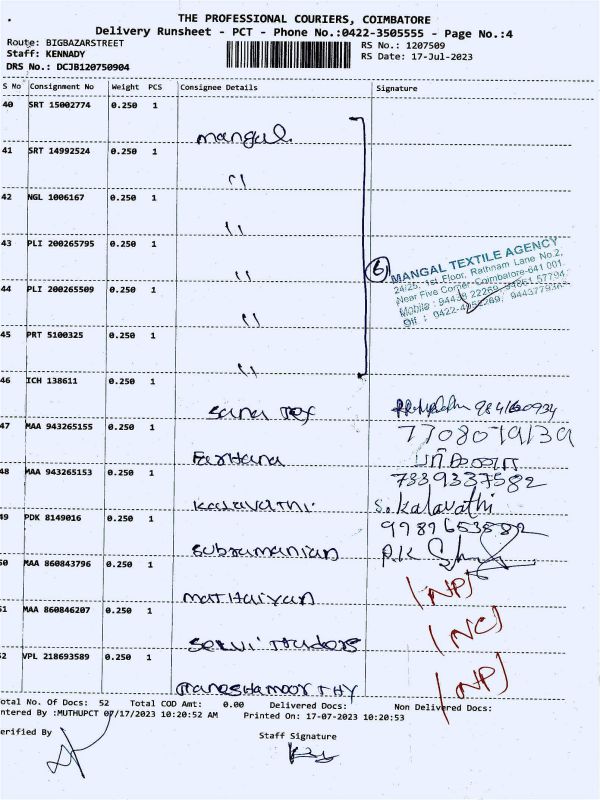 THE PROFESSIONAL COURIERS, COIMBATORE
Delivery Runsheet - PCT - Phone No.:0422-3505555 - Page No.:4
Route: BIGBAZARSTREET
RS No.: 1207509
Staff: KENNADY
RS Date: 17-Jul-2023
DRS No.: DCJB120750904
S No Consignment No Weight PCS Consignee Details Signature
40 SRT 15002774 0.250 1
mangal
41 SRT 14992524 0.250 1
"
42 NGL 1006167 0.250 1
"
43 PLI 200265795 0.250 1
"
6 MANGAL TEXTILE AGENCY
24/25, 1st Floor, Rathnam Lane No.2,
Near Five Corner Coimbatore-641 001.
Mobile : 94438 22269,
Off : 0422-
44 PLI 200265509 0.250 1
"
45 PRT 5100325 0.250 1
"
46 ICH 138611 0.250 1
Sana Tex
47 MAA 943265155 0.250 1
7708079139
Farhana
48 MAA 943265153 0.250 1
7339337582
Kalavathi S. Kalavathi
49 PDK 8149016 0.250 1
Subramanian P.K
50 MAA 860843796 0.250 1
Mathaiyan (NP)
51 MAA 860846207 0.250 1
Selvi Traders (NC)
52 VPL 218693589 0.250 1
(NP)
otal No. Of Docs: 52 Total COD Amt: 0.00 Delivered Docs: Non Delivered Docs:
ntered By :MUTHUPCT 07/17/2023 10:20:52 AM Printed On: 17-07-2023 10:20:53
erified By Staff Signature